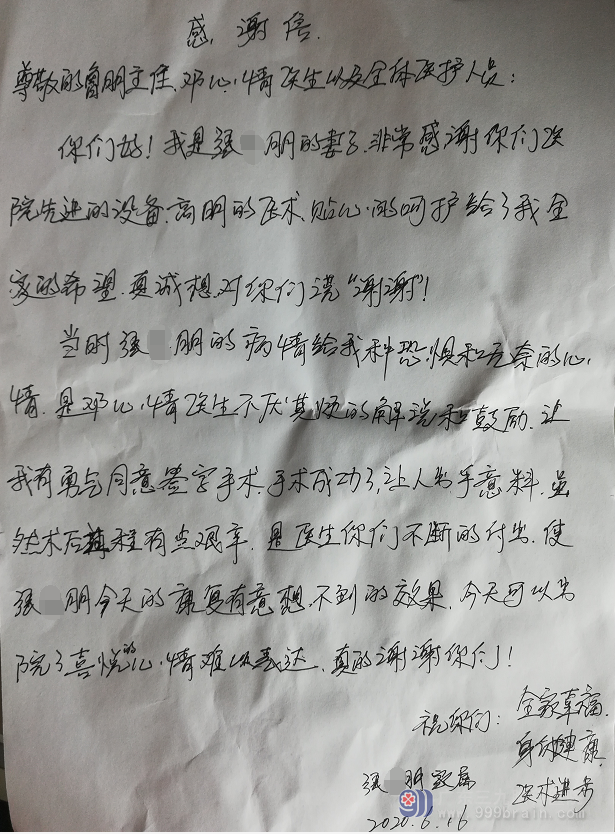 感谢信
尊敬的鲁明主任、邓心情医生以及全体医护人员:
你们好!我是张 朋的妻子,非常感谢你们医
院先进的设备,高明的医术、贴心的呵护给了我全
家的希望,真诚想对你们说“谢谢”!
当时张 朋的病情给我种恐惧和无奈的心
情,是邓心情医生不厌其烦的解说和鼓励,让
我有勇气同意签字手术,手术成功了,让人出乎意料,虽
然术后 程有点艰辛,是医生你们不断的付出,使
张 朋今天的康复有意想不到的效果,今天可以出
院了喜悦的心情难以表达,真的谢谢你们!
祝你们:全家幸福
身体健康
医术进步
张 朋家属
2020.6.16
www.999brain.com